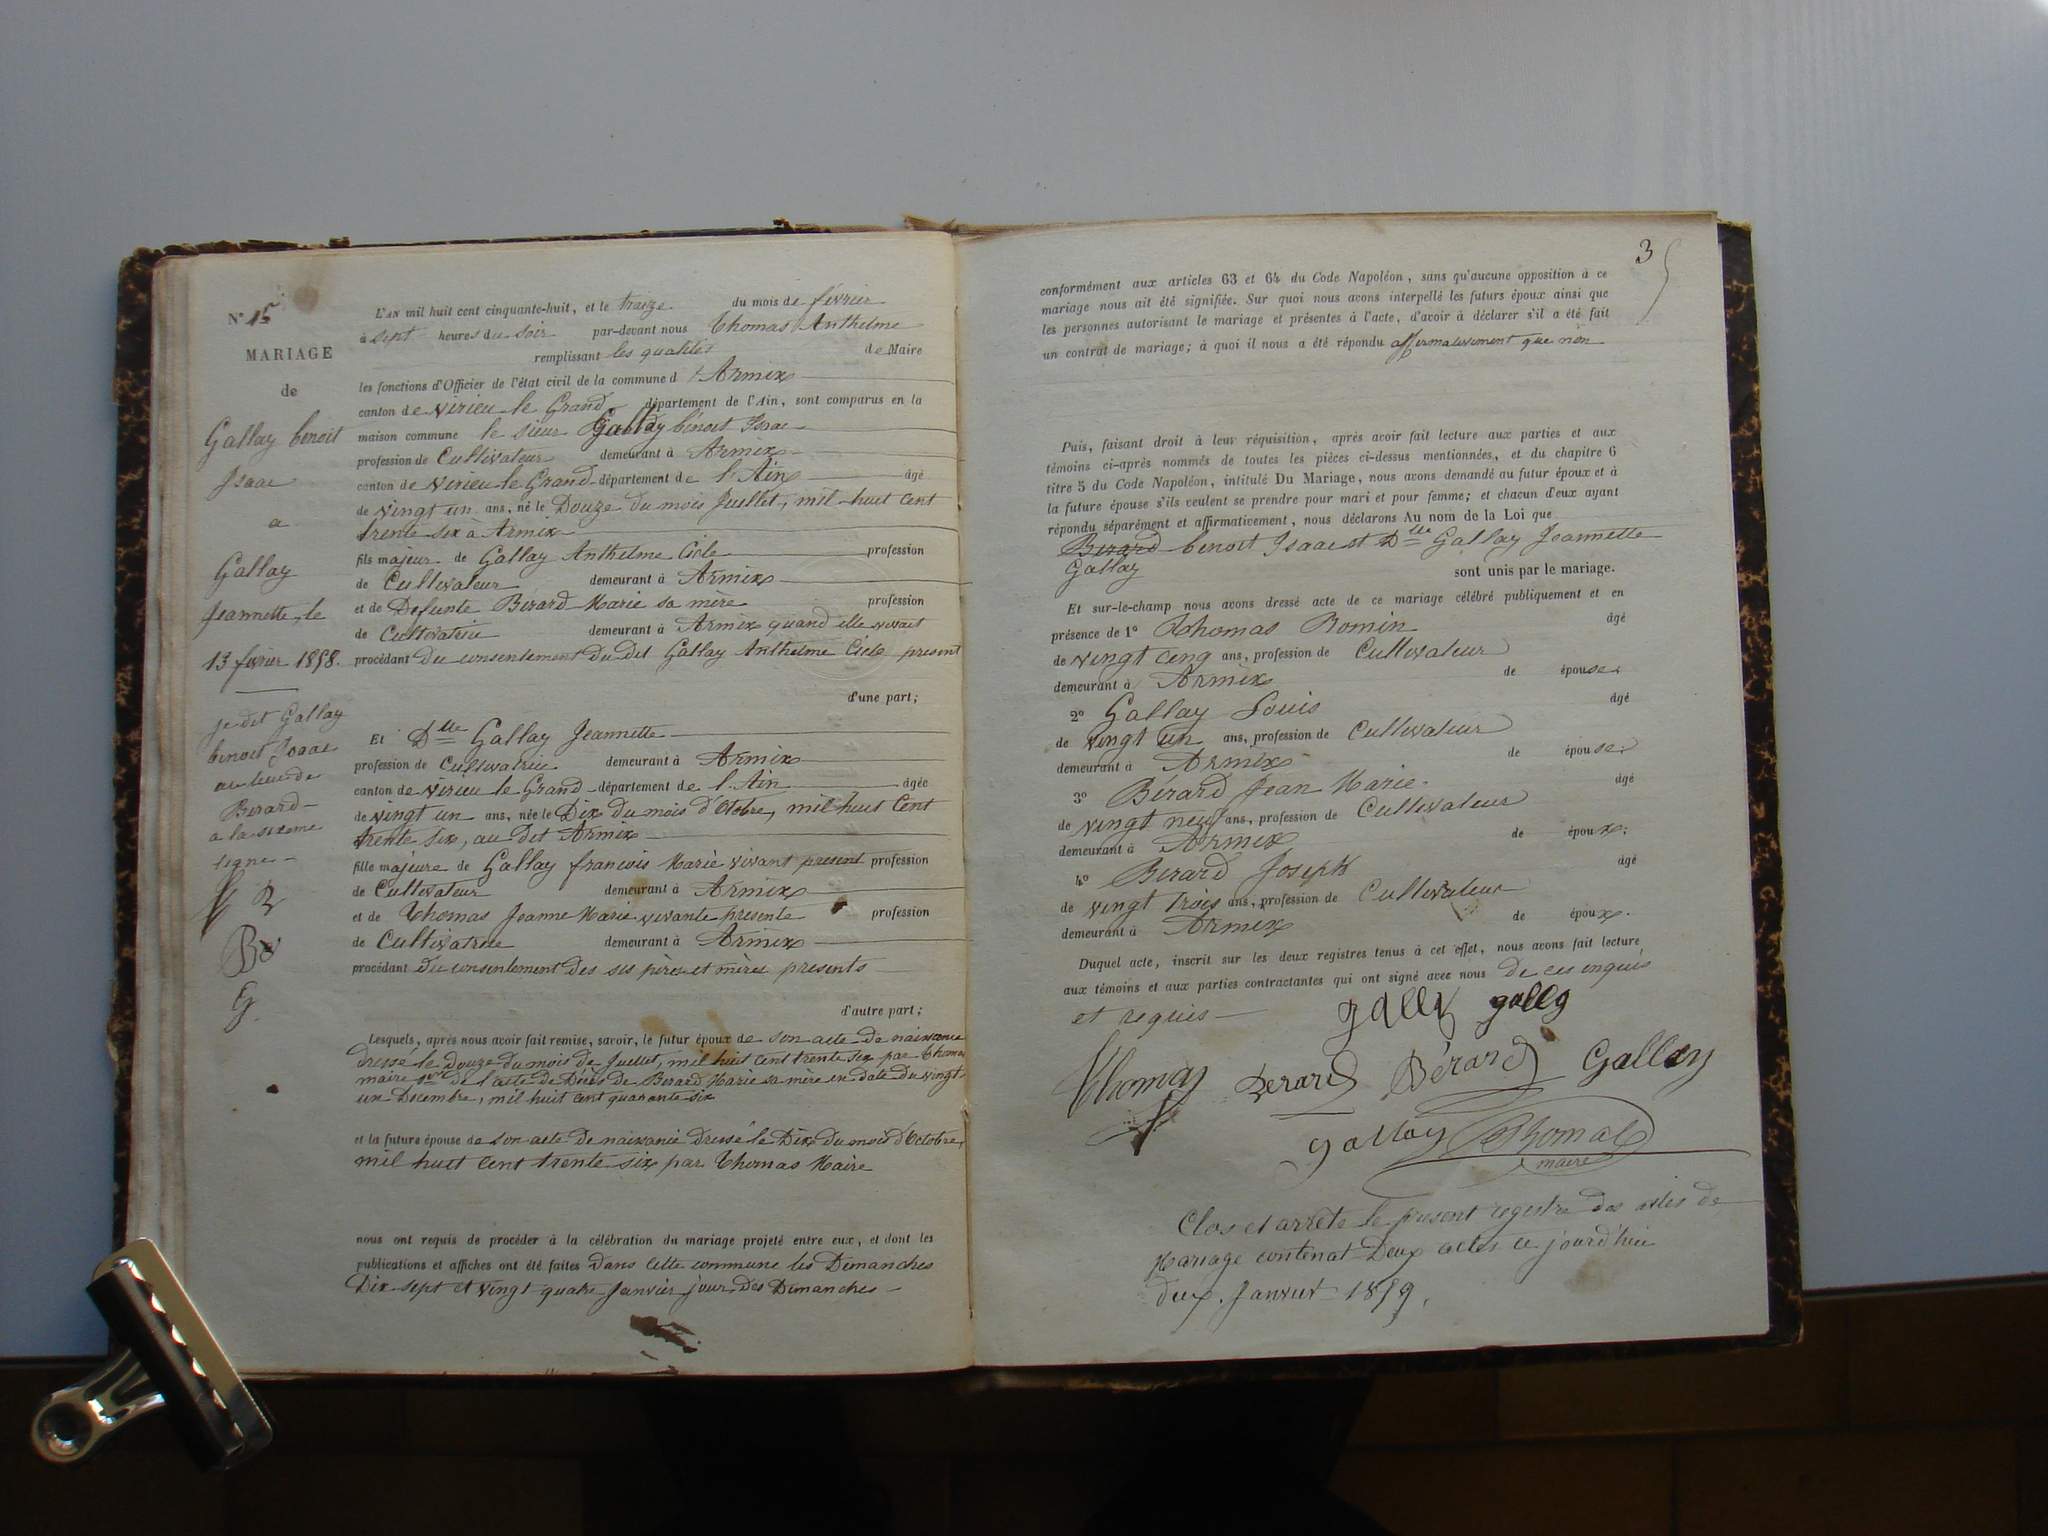 N° 15
MARIAGE
de
Gallay benoit
Isaac
a
Gallay
Jeannette, le
13 fevrier 1858.
je dit Gallay
benoit Isaac
au lieu de
Berard
a la sixeme
ligne
B
G
L'AN mil huit cent cinquante-huit, et le traize du mois de février
à sept heures du soir par-devant nous Thomas Anthelme
remplissant les qualités de Maire
les fonctions d'Officier de l'état civil de la commune d'Armix
canton de virieu le Grand département de l'Ain, sont comparus en la
maison commune le sieur Gallay bénoit Isaac
profession de Cultivateur demeurant à Armix
canton de virieu le Grand département de l'Ain âgé
de vingt un ans, né le Douze du mois Juillet, mil huit cent
trente six à Armix
fils majeur de Gallay Anthelme Cicle profession
de Cultivateur demeurant à Armix
et de Defunte Bérard Marie sa mère profession
de Cultivatrice demeurant à Armix quand elle vivait
procédant du consentement du dit Gallay Anthelme Cicle present
d'une part;
Et Dlle Gallay Jeannette
profession de Cultivatrice demeurant à Armix
canton de virieu le Grand département de l'Ain âgée
de vingt un ans, née le Dix du mois d'Octobre, mil huit Cent
trente six, au dit Armix
fille majeure de Gallay francois Marie vivant present profession
de Cultivateur demeurant à Armix
et de Thomas Jeanne Marie vivante presente profession
de Cultivatrice demeurant à Armix
procédant du consentement des ses pères et mères presents
d'autre part;
Lesquels, après nous avoir fait remise, savoir, le futur époux de son acte de naissance
dressé le Douze du mois de Juillet, mil huit cent trente six par Thomas
maire de l'acte de Décès de Berard Marie sa mère en date du vingt
un Decembre, mil huit cent quarante six
et la future épouse de son acte de naissance dressé le Dix du mois d'Octobre,
mil huit cent trente six par Thomas Maire
nous ont requis de procéder à la célébration du mariage projeté entre eux, et dont les
publications et affiches ont été faites dans cette commune les Dimanches
Dix sept et vingt quatre Janvier jour des Dimanches
3
conformément aux articles 63 et 64 du Code Napoléon, sans qu'aucune opposition à ce
mariage nous ait été signifiée. Sur quoi nous avons interpellé les futurs époux ainsi que
les personnes autorisant le mariage et présentes à l'acte, d'avoir à déclarer s'il a été fait
un contrat de mariage; à quoi il nous a été répondu affirmativement que non
Puis, faisant droit à leur réquisition, après avoir fait lecture aux parties et aux
témoins ci-après nommés de toutes les pièces ci-dessus mentionnées, et du chapitre 6
titre 5 du Code Napoléon, intitulé Du Mariage, nous avons demandé au futur époux et à
la future épouse s'ils veulent se prendre pour mari et pour femme; et chacun d'eux ayant
répondu séparément et affirmativement, nous déclarons Au nom de la Loi que
Berard benoit Isaac et Dlle Gallay Jeannette
Gallay sont unis par le mariage.
Et sur-le-champ nous avons dressé acte de ce mariage célébré publiquement et en
présence de 1° Thomas Romin âgé
de vingt cinq ans, profession de Cultivateur
demeurant à Armix de épouse.
2° Gallay Louis âgé
de vingt un ans, profession de Cultivateur
demeurant à Armix de épouse.
3° Bérard Jean Marie. âgé
de vingt neuf ans, profession de Cultivateur
demeurant à Armix de époux;
4° Berard Joseph âgé
de vingt trois ans, profession de Cultivateur
demeurant à Armix de époux.
Duquel acte, inscrit sur les deux registres tenus à cet effet, nous avons fait lecture
aux témoins et aux parties contractantes qui ont signé avec nous de ces enquis
et requis
gally gally
Thomas Berard Bérard Gallay
gallay Thomas
maire
Clos et arrêté le present registre des actes de
Mariage contenat Deux actes ce jourd'hui
deux Janvier 1859.